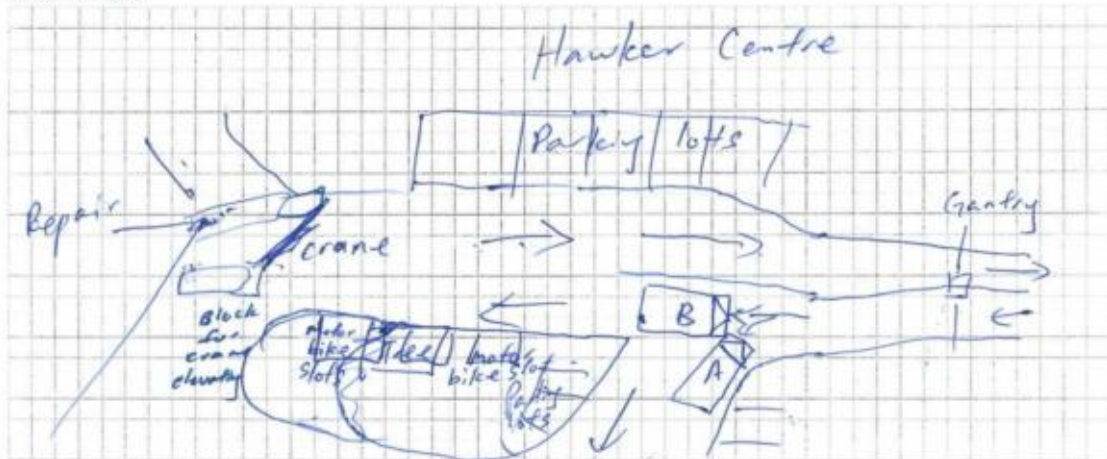 Hawker Centre
Parking lotts
Gantry
Repair
crane
B
A
Block
for
crane
elevating
motor
bike
slots
Tree
motor
bike slot
Parking
lots